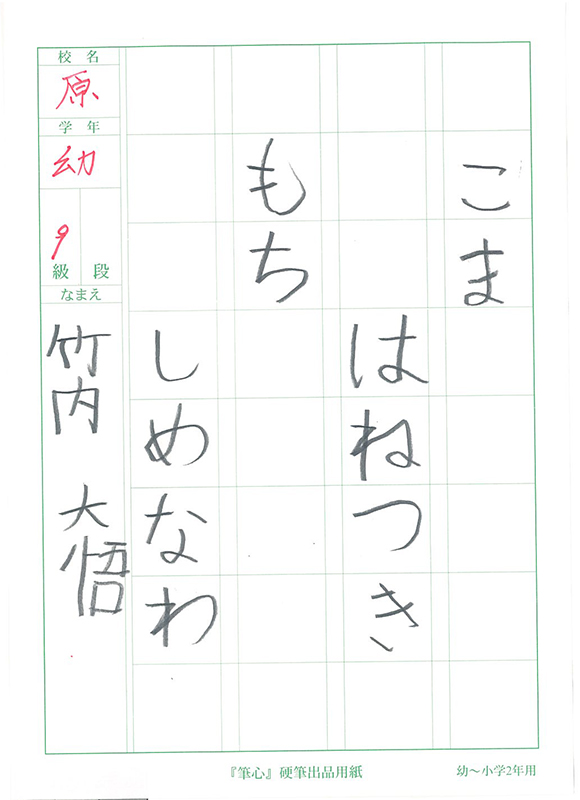 こま
はねつき
もち
しめなわ
校名
原
学年
幼
9
級 段
なまえ
竹内 大悟
『筆心』硬筆出品用紙
幼〜小学2年用